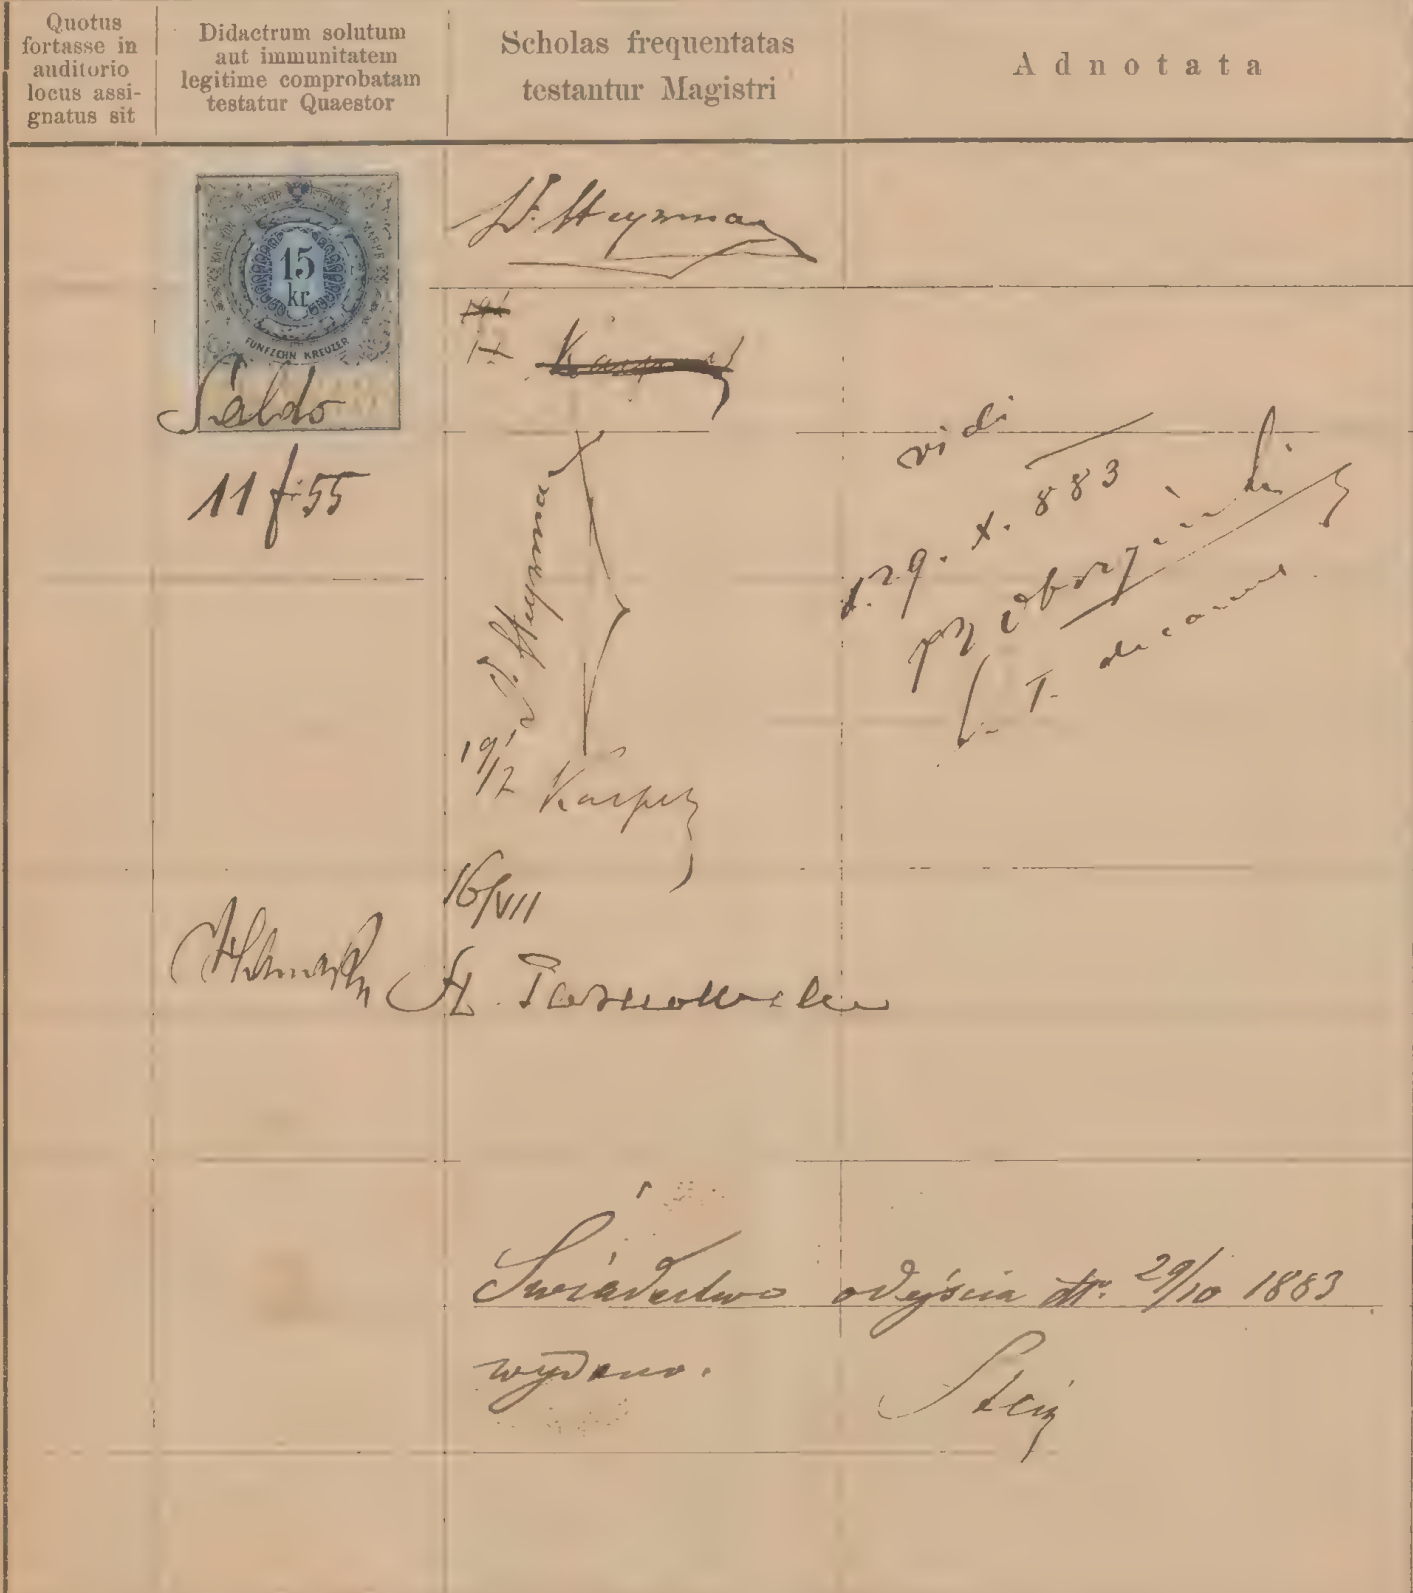 Quotus
fortasse in
auditorio
locus assi-
gnatus sit
Didactrum solutum
aut immunitatem
legitime comprobatam
testatur Quaestor
Scholas frequentatas
testantur Magistri
Adnotata
15
kr.
FÜNFZEHN KREUZER
Saldo
11 f. 55
Dr. Heyzman
vidi
d. 29. X. 883
decanus
Heyzman
19/
/7
16/VII
St. Tarnowski
Świadectwo odejścia dtt. 29/10 1883
wydano.